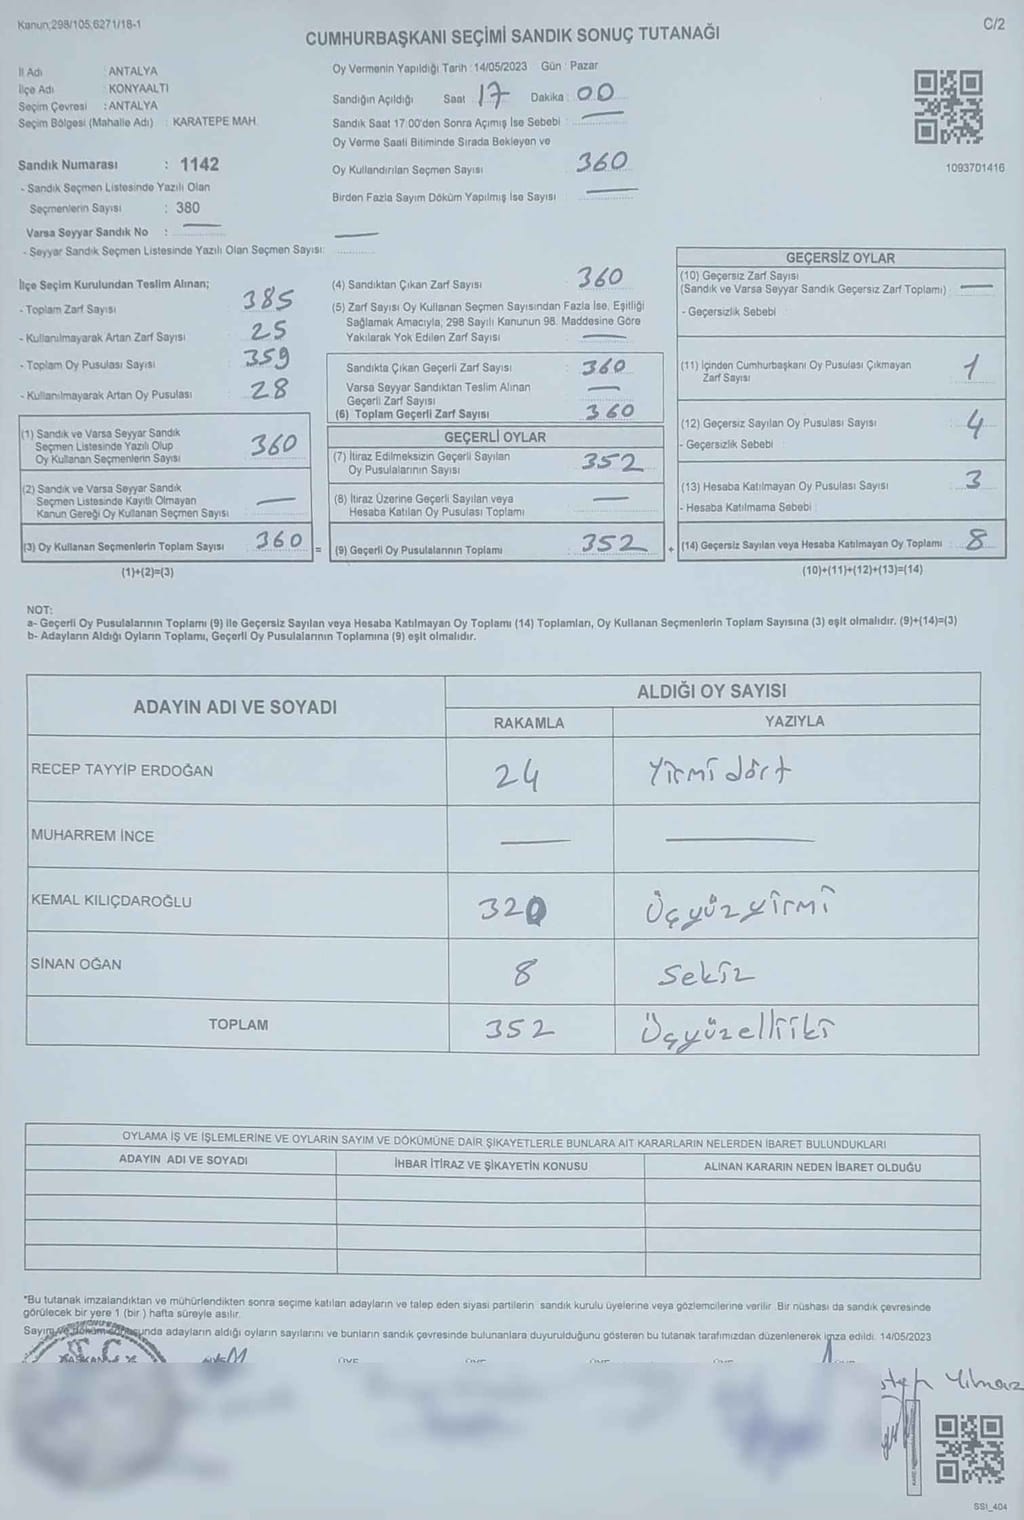 Kanun;298/105;6271/18-1
C/2
CUMHURBAŞKANI SEÇİMİ SANDIK SONUÇ TUTANAĞI
İl Adı : ANTALYA
İlçe Adı : KONYAALTI
Seçim Çevresi : ANTALYA
Seçim Bölgesi (Mahalle Adı) : KARATEPE MAH.
Sandık Numarası : 1142
- Sandık Seçmen Listesinde Yazılı Olan
Seçmenlerin Sayısı : 380
Varsa Seyyar Sandık No : —
- Seyyar Sandık Seçmen Listesinde Yazılı Olan Seçmen Sayısı: —
Oy Vermenin Yapıldığı Tarih : 14/05/2023 Gün : Pazar
Sandığın Açıldığı Saat : 17 Dakika : 00
Sandık Saat 17:00'den Sonra Açımış İse Sebebi : —
Oy Verme Saati Bitiminde Sırada Bekleyen ve
Oy Kullandırılan Seçmen Sayısı : 360
Birden Fazla Sayım Döküm Yapılmış İse Sayısı : —
1093701416
İlçe Seçim Kurulundan Teslim Alınan;
- Toplam Zarf Sayısı : 385
- Kullanılmayarak Artan Zarf Sayısı : 25
- Toplam Oy Pusulası Sayısı : 359
- Kullanılmayarak Artan Oy Pusulası : 28
(1) Sandık ve Varsa Seyyar Sandık
Seçmen Listesinde Yazılı Olup
Oy Kullanan Seçmenlerin Sayısı 360
(2) Sandık ve Varsa Seyyar Sandık
Seçmen Listesinde Kayıtlı Olmayan
Kanun Gereği Oy Kullanan Seçmen Sayısı —
(3) Oy Kullanan Seçmenlerin Toplam Sayısı 360
(1)+(2)=(3)
(4) Sandıktan Çıkan Zarf Sayısı : 360
(5) Zarf Sayısı Oy Kullanan Seçmen Sayısından Fazla İse, Eşitliği
Sağlamak Amacıyla; 298 Sayılı Kanunun 98. Maddesine Göre
Yakılarak Yok Edilen Zarf Sayısı : —
Sandıkta Çıkan Geçerli Zarf Sayısı : 360
Varsa Seyyar Sandıktan Teslim Alınan
Geçerli Zarf Sayısı : —
(6) Toplam Geçerli Zarf Sayısı : 360
GEÇERLİ OYLAR
(7) İtiraz Edilmeksizin Geçerli Sayılan
Oy Pusulalarının Sayısı : 352
(8) İtiraz Üzerine Geçerli Sayılan veya
Hesaba Katılan Oy Pusulası Toplamı : —
= (9) Geçerli Oy Pusulalarının Toplamı : 352
GEÇERSİZ OYLAR
(10) Geçersiz Zarf Sayısı
(Sandık ve Varsa Seyyar Sandık Geçersiz Zarf Toplamı) : —
- Geçersizlik Sebebi :
(11) İçinden Cumhurbaşkanı Oy Pusulası Çıkmayan
Zarf Sayısı 1
(12) Geçersiz Sayılan Oy Pusulası Sayısı : 4
- Geçersizlik Sebebi :
(13) Hesaba Katılmayan Oy Pusulası Sayısı : 3
- Hesaba Katılmama Sebebi :
+ (14) Geçersiz Sayılan veya Hesaba Katılmayan Oy Toplamı : 8
(10)+(11)+(12)+(13)=(14)
NOT:
a- Geçerli Oy Pusulalarının Toplamı (9) ile Geçersiz Sayılan veya Hesaba Katılmayan Oy Toplamı (14) Toplamları, Oy Kullanan Seçmenlerin Toplam Sayısına (3) eşit olmalıdır. (9)+(14)=(3)
b- Adayların Aldığı Oyların Toplamı, Geçerli Oy Pusulalarının Toplamına (9) eşit olmalıdır.
ADAYIN ADI VE SOYADI ALDIĞI OY SAYISI
RAKAMLA YAZIYLA
RECEP TAYYİP ERDOĞAN 24 Yirmi dört
MUHARREM İNCE — —
KEMAL KILIÇDAROĞLU 320 Üçyüzyirmi
SİNAN OĞAN 8 Sekiz
TOPLAM 352 Üçyüzelliiki
OYLAMA İŞ VE İŞLEMLERİNE VE OYLARIN SAYIM VE DÖKÜMÜNE DAİR ŞİKAYETLERLE BUNLARA AİT KARARLARIN NELERDEN İBARET BULUNDUKLARI
ADAYIN ADI VE SOYADI İHBAR İTİRAZ VE ŞİKAYETİN KONUSU ALINAN KARARIN NEDEN İBARET OLDUĞU
*Bu tutanak imzalandıktan ve mühürlendikten sonra seçime katılan adayların ve talep eden siyasi partilerin sandık kurulu üyelerine veya gözlemcilerine verilir. Bir nüshası da sandık çevresinde
görülecek bir yere 1 (bir ) hafta süreyle asılır.
Sayım ve döküm sonucunda adayların aldığı oyların sayılarını ve bunların sandık çevresinde bulunanlara duyurulduğunu gösteren bu tutanak tarafımızdan düzenlenerek imza edildi. 14/05/2023
T.C.
Yılmaz
SSI_404